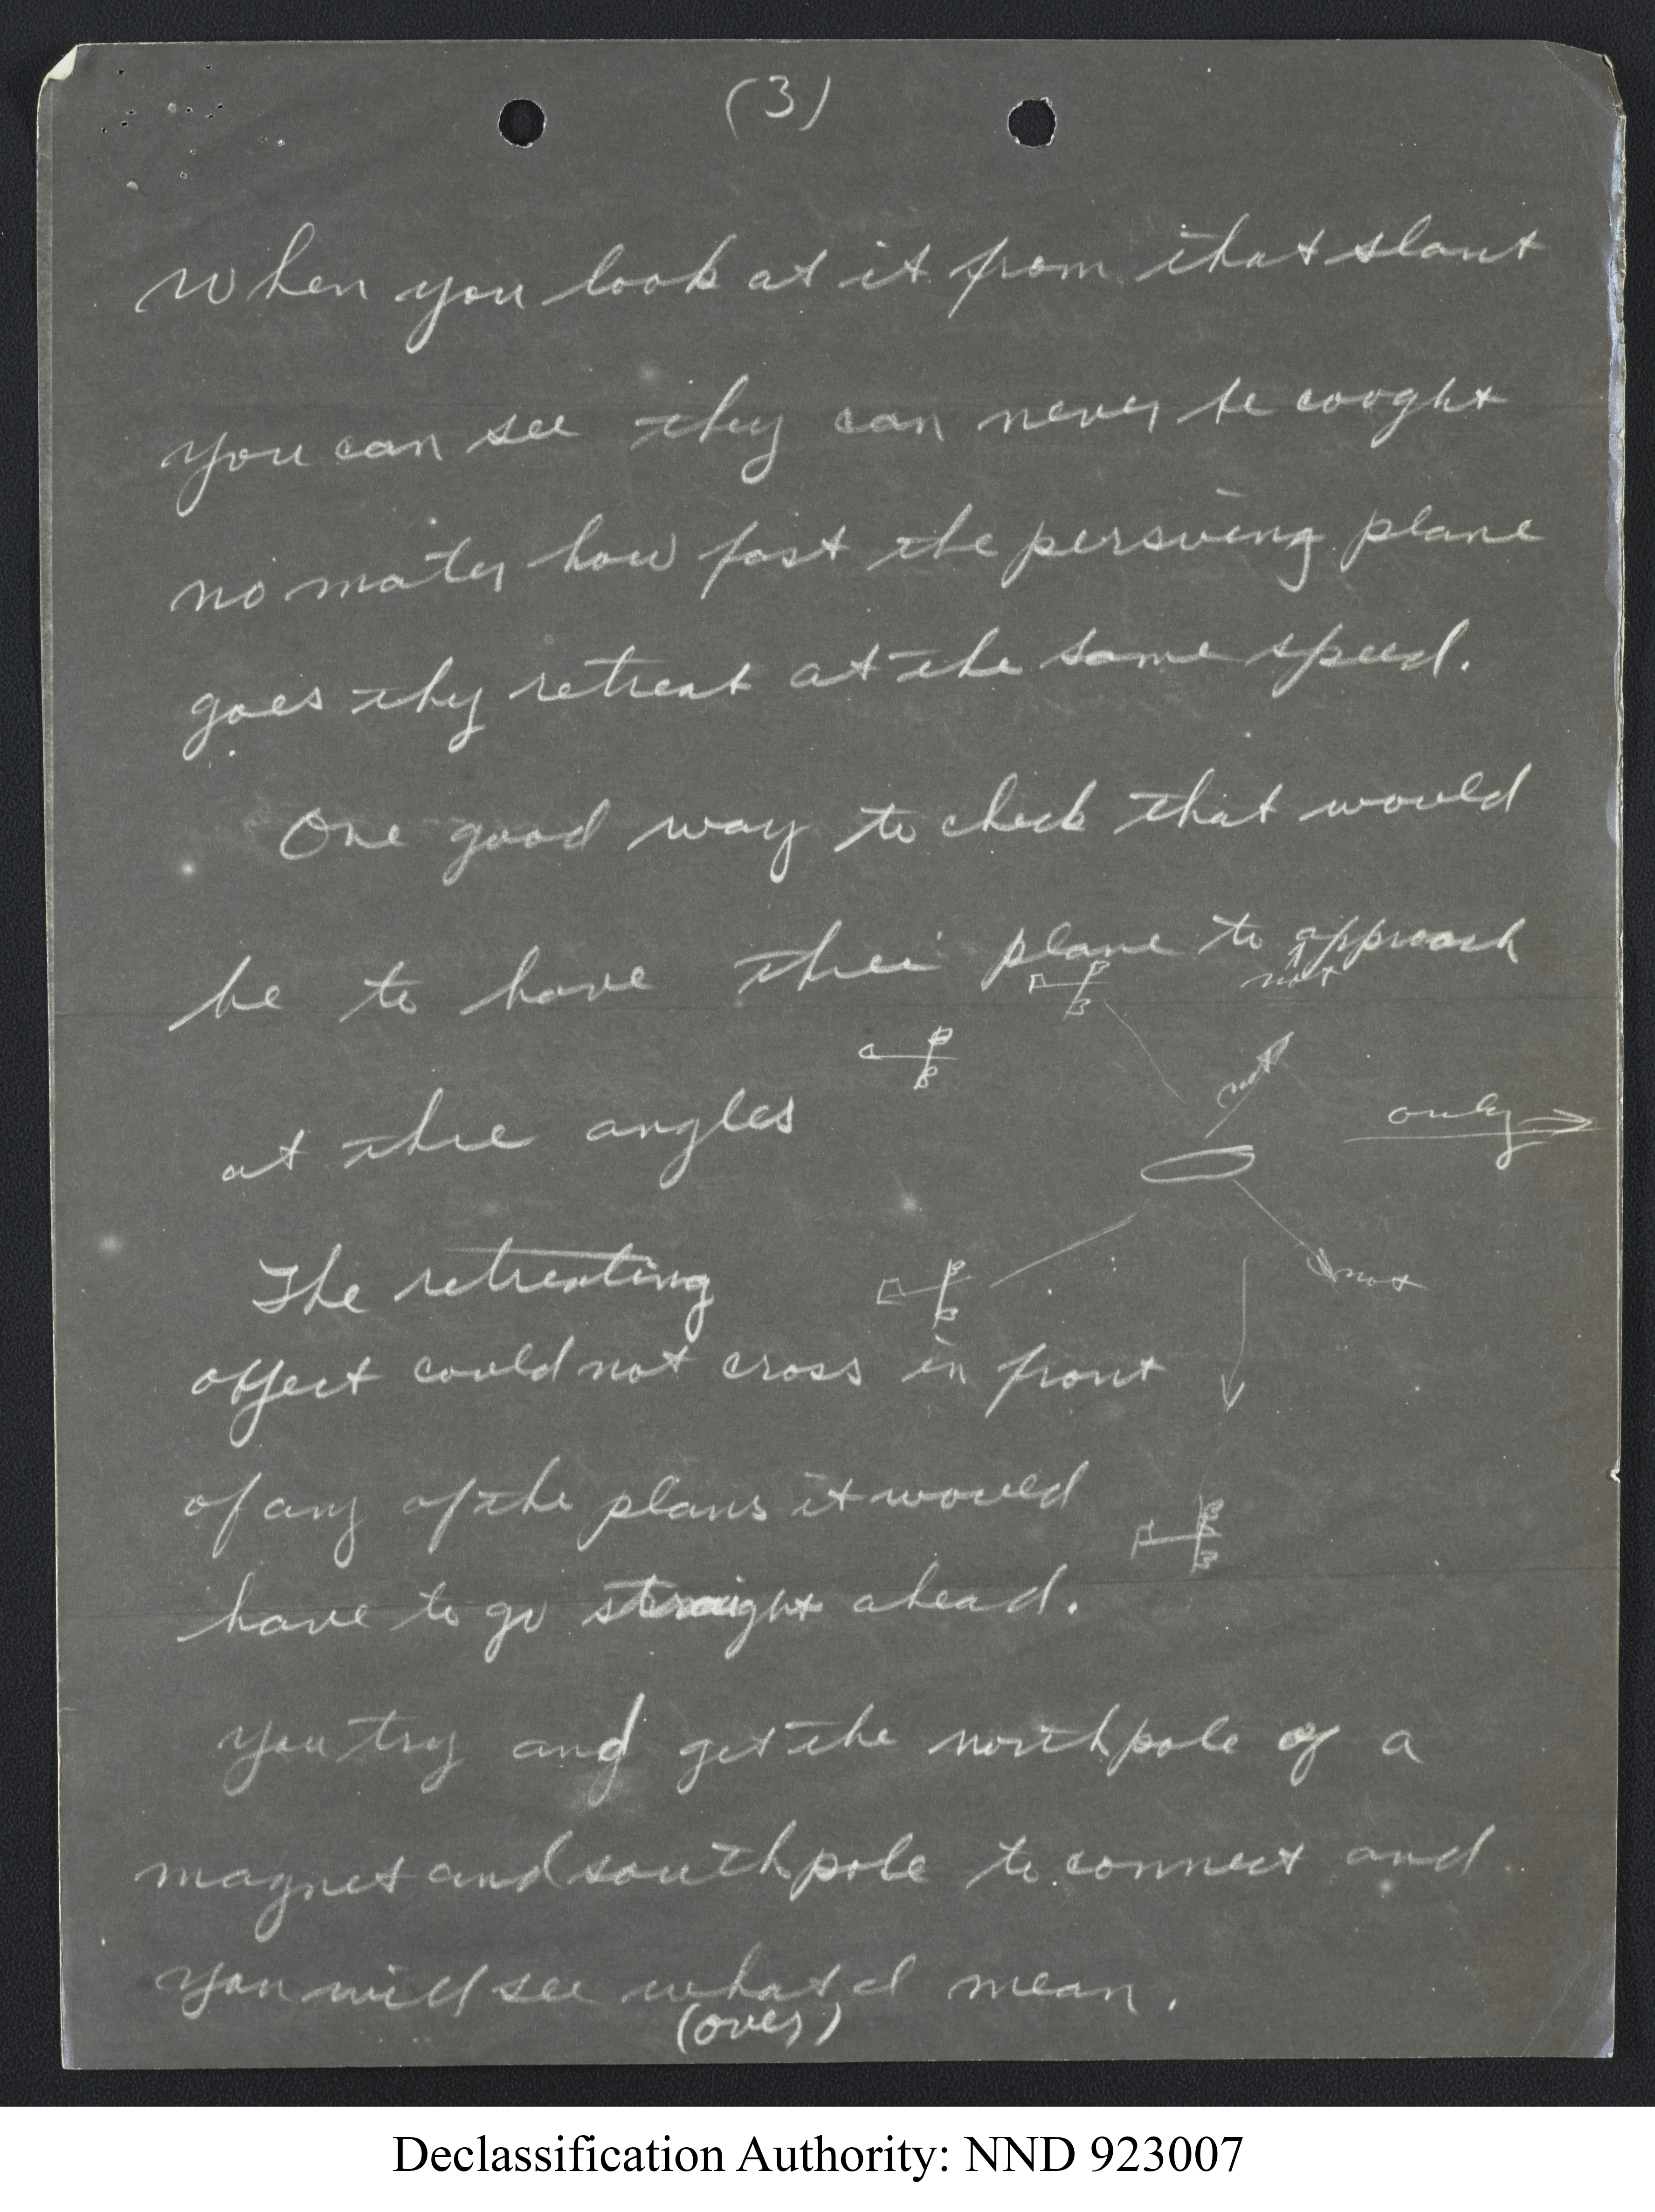 (3)
When you look at it from that slant
you can see they can never be cooght
no mater how fast the persueing plane
goes thy retreat at the same speed.
One good way to check that would
be to have thrie plane to approach
not
at thrie angles
not
only
The retreating
not
object could not cross in front
of any of the plans it would
have to go straight ahead.
you try and get the north pole of a
magnet and south pole to connect and
you will see what I mean.
(over)
Declassification Authority: NND 923007